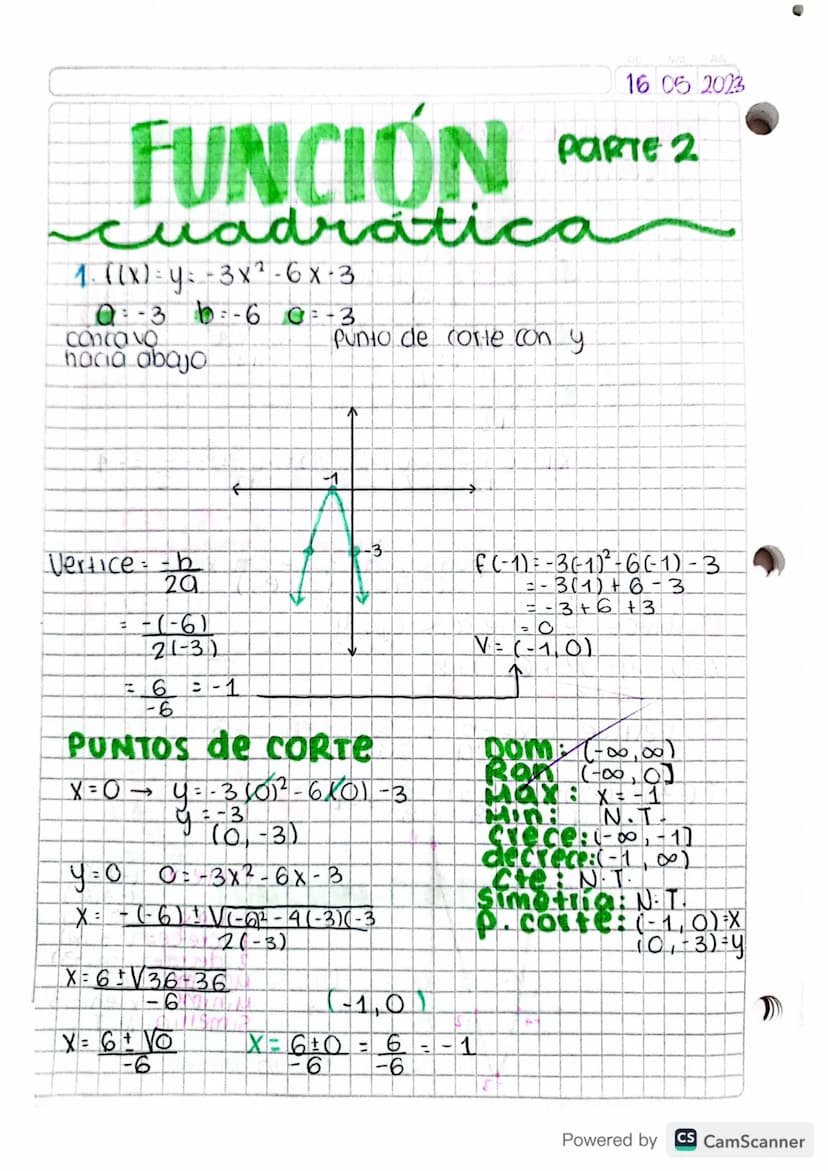 16 05 2023
FUNCIÓN PARTE 2
cuadrática
1. f(x)=y=-3x²-6x-3
a=-3 b=-6 c=-3
cóncavo
hacia abajo
Punto de corte con y
-1
-3
Vertice = -b/2a
= -(-6)/2(-3)
= 6/-6 = -1
f(-1)=-3(-1)²-6(-1)-3
=-3(1)+6-3
=-3+6+3
=0
V=(-1,0)
PUNTOS de CORTE
X=0→ y=-3(0)²-6(0)-3
y=-3
(0,-3)
y=0 0=-3x²-6x-3
X= -(-6)±√(-6)²-4(-3)(-3/2(-3)
X=6±√36-36/-6
(-1,0)
X=6±√0/-6 X=6±0/-6=6/-6=-1
Dom: (-∞,∞)
Ran (-∞,0]
Máx: x=-1
Min: N.T.
Crece:(-∞,-1]
decrece:(-1,∞)
Cte: N.T.
Simetría: N.T.
P. corte: (-1,0)=X
(0,-3)=y
Powered by CS CamScanner